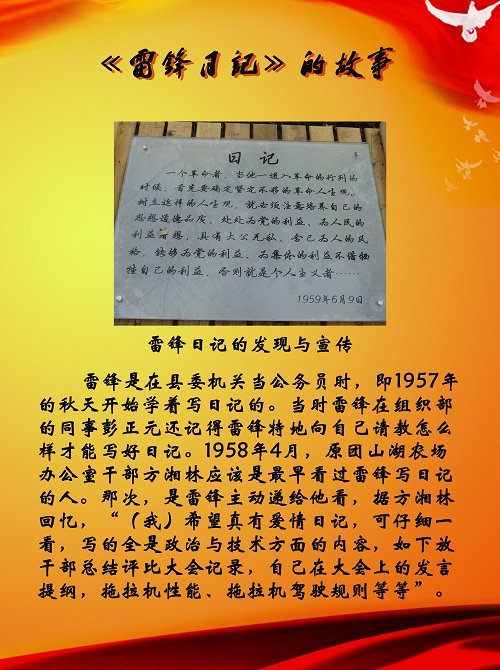 《雷锋日记》的故事
日记
一个革命者，当他一进入革命的行列的
时候，首先要确定坚定不移的革命人生观。
树立这样的人生观，就必须注意培养自己的
思想道德品质，处处为党的利益、为人民的
利益着想，具有大公无私、舍己为人的风
格，能够为党的利益、为集体的利益不惜牺
牲自己的利益，否则就是个人主义者……
1959年6月9日
雷锋日记的发现与宣传
雷锋是在县委机关当公务员时，即1957年
的秋天开始学着写日记的。当时雷锋在组织部
的同事彭正元还记得雷锋特地向自己请教怎么
样才能写好日记。1958年4月，原团山湖农场
办公室干部方湘林应该是最早看过雷锋写日记
的人。那次，是雷锋主动递给他看，据方湘林
回忆，“（我）希望真有爱情日记，可仔细一
看，写的全是政治与技术方面的内容，如下放
干部总结评比大会记录，自己在大会上的发言
提纲，拖拉机性能、拖拉机驾驶规则等等”。